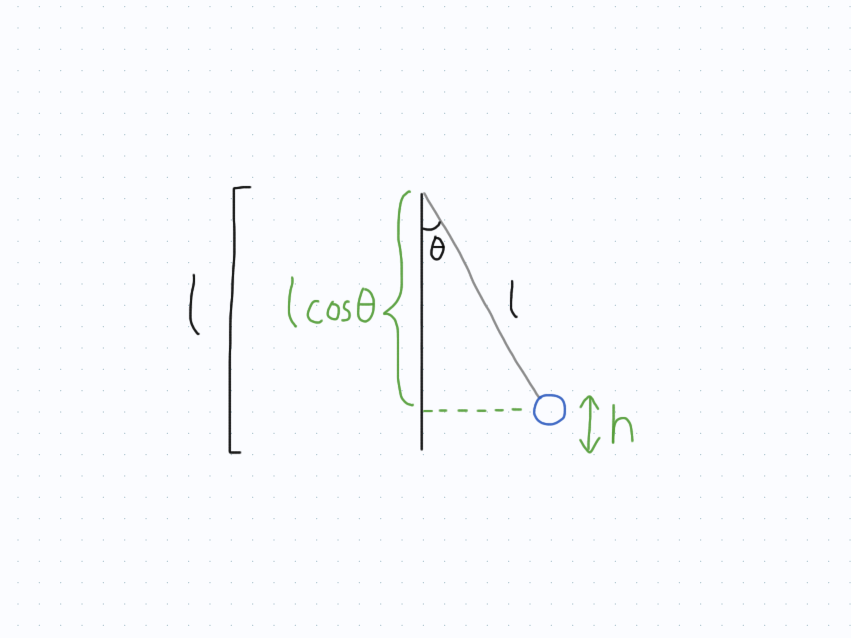 l
l cosθ
θ
l
h